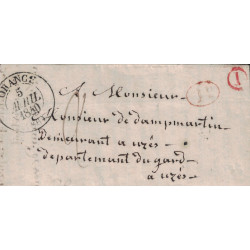 ORANGE
5
AVRIL
1840
1
A Monsieur
Monsieur de dampmartin
Demeurant a uzès
departement du gard
a uzès